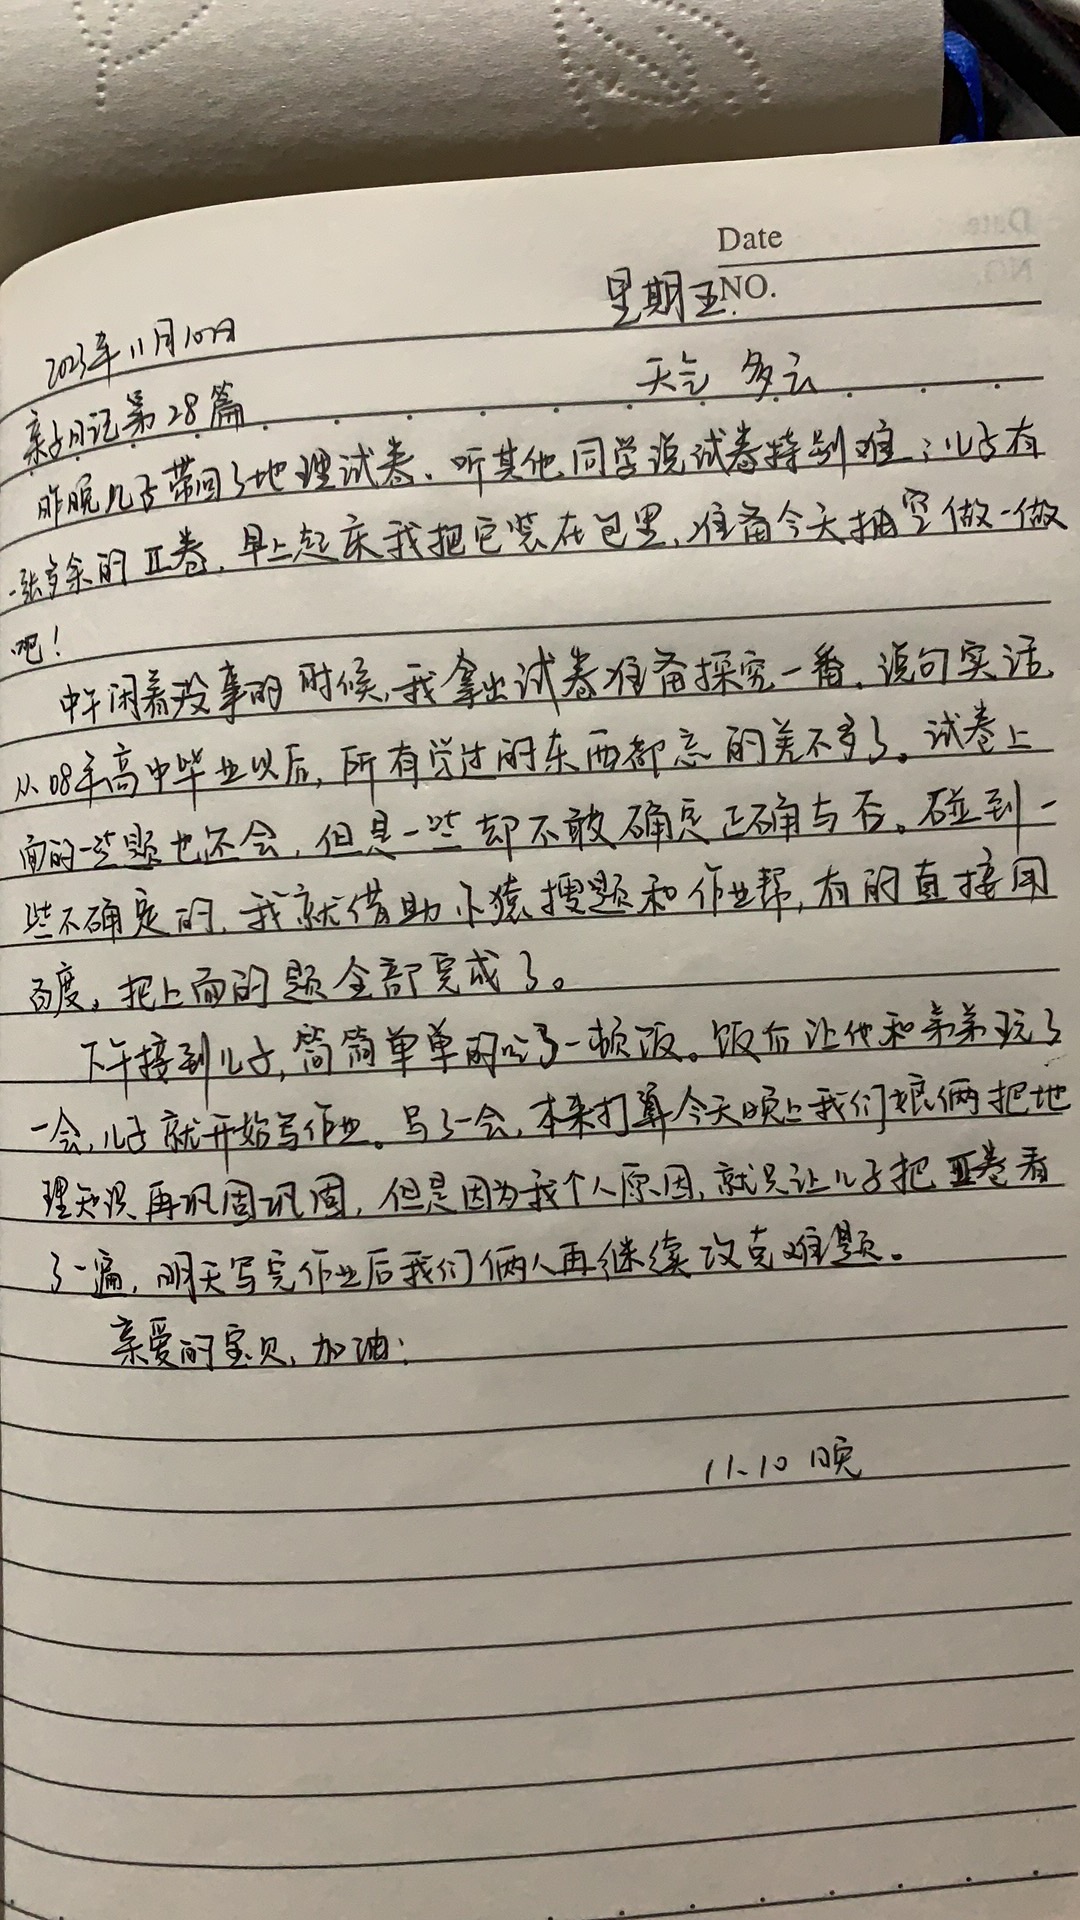 Date
NO.
星期五
2023年11月10日
天气 多云
亲子日记第28篇
昨晚儿子带回了地理试卷，听其他同学说试卷特别难；儿子有
一张多余的Ⅱ卷，早上起床我把它装在包里，准备今天抽空做一做
吧！
中午闲着没事的时候，我拿出试卷准备探究一番，说句实话，
从08年高中毕业以后，所有学过的东西都忘的差不多了。试卷上
面的一些题也还会，但是一些却不敢确定正确与否。碰到一
些不确定的，我就借助小猿搜题和作业帮，有的直接用
百度。把上面的题全部完成了。
下午接到儿子，简简单单的吃了一顿饭。饭后让他和弟弟玩了
一会，儿子就开始写作业。写了一会，本来打算今天晚上我们娘俩把地
理知识再巩固巩固，但是因为我个人原因，就只让儿子把Ⅱ卷看
了一遍，明天写完作业后我们俩人再继续攻克难题。
亲爱的宝贝，加油！
11.10 晚